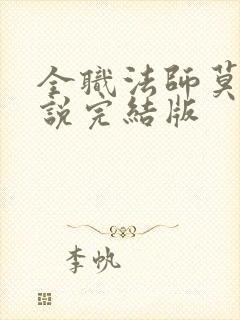 全職法師莫
說完結版
李帆